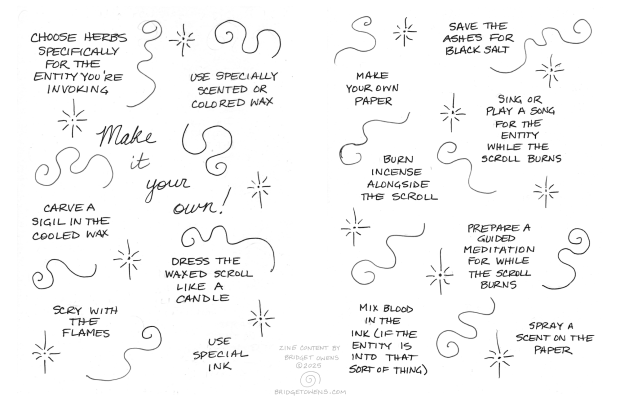 CHOOSE HERBS
SPECIFICALLY
FOR THE
ENTITY YOU'RE
INVOKING
USE SPECIALLY
SCENTED OR
COLORED WAX
Make
it
your
own!
CARVE A
SIGIL IN THE
COOLED WAX
DRESS THE
WAXED SCROLL
LIKE A
CANDLE
SCRY WITH
THE
FLAMES
USE
SPECIAL
INK
ZINE CONTENT BY
BRIDGET OWENS
©2025
BRIDGETOWENS.COM
MAKE
YOUR OWN
PAPER
SAVE THE
ASHES FOR
BLACK SALT
SING OR
PLAY A SONG
FOR THE
ENTITY
WHILE THE
SCROLL BURNS
BURN
INCENSE
ALONGSIDE
THE SCROLL
PREPARE A
GUIDED
MEDITATION
FOR WHILE
THE SCROLL
BURNS
MIX BLOOD
IN THE
INK (IF THE
ENTITY IS
INTO THAT
SORT OF THING)
SPRAY A
SCENT ON THE
PAPER